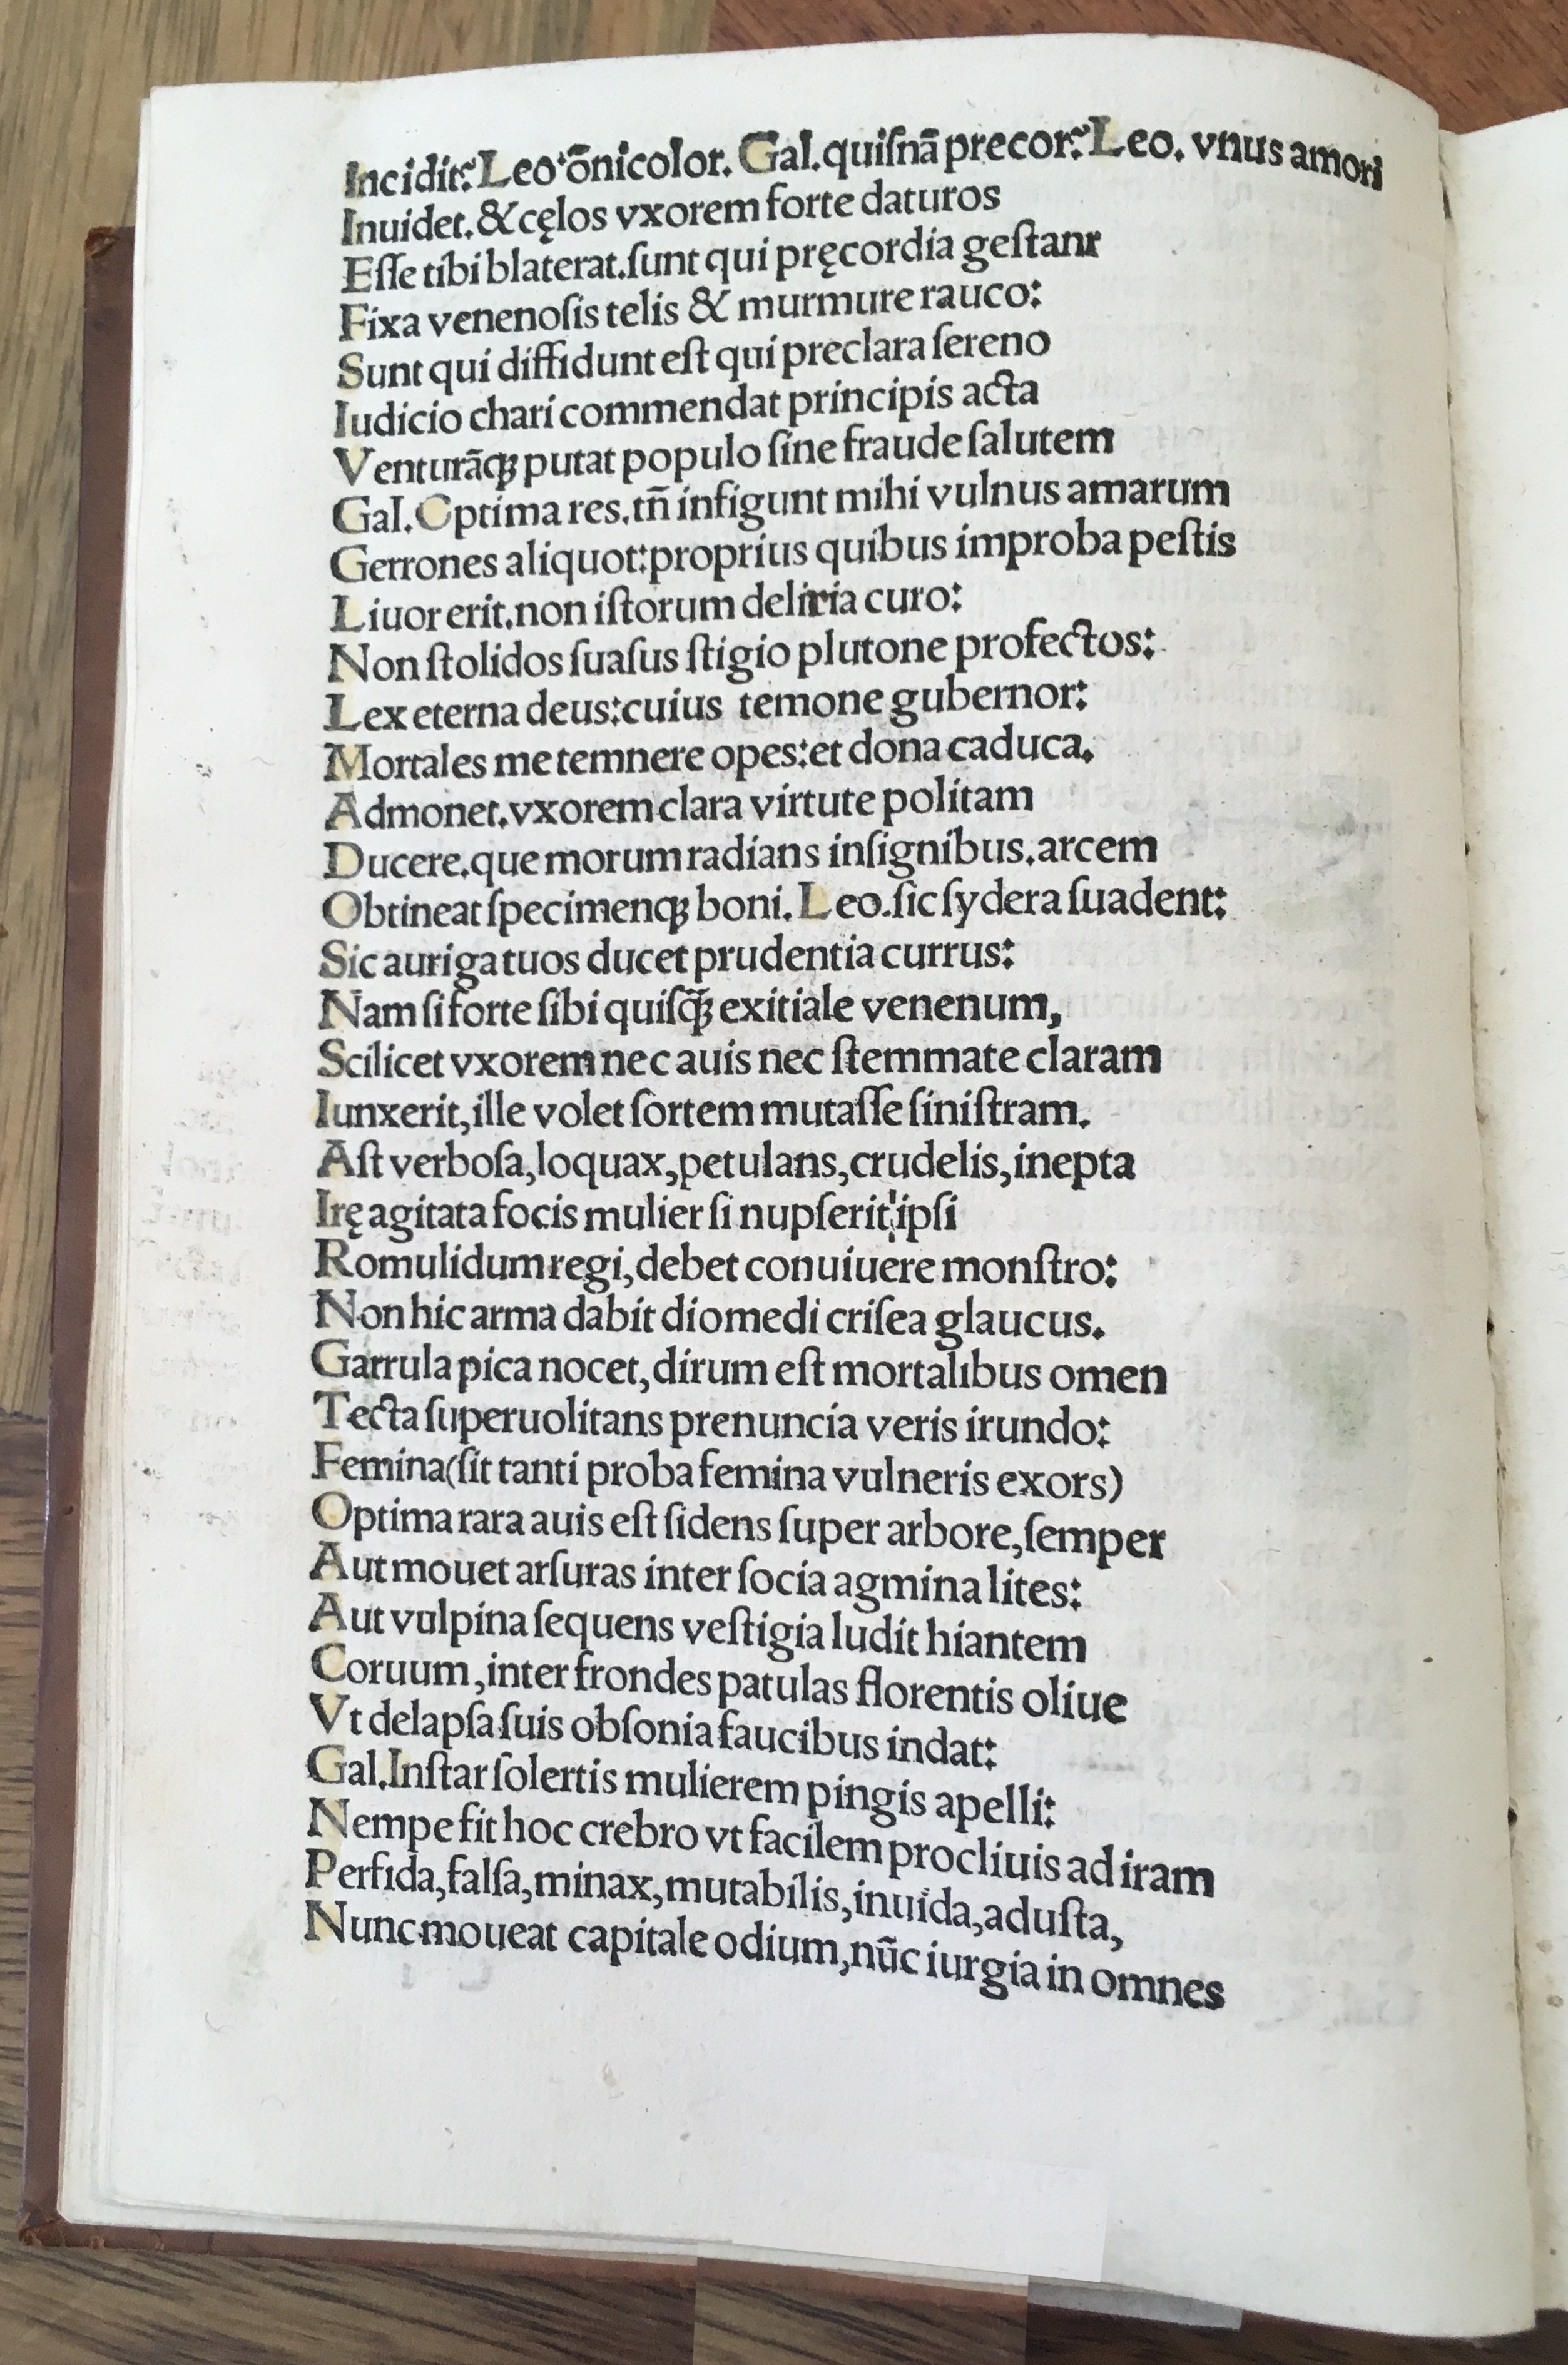 Incidit? Leo ōnicolor. Gal. quiſnā precor? Leo. vnus amori
Inuidet. & cęlos vxorem forte daturos
Eſſe tibi blaterat. ſunt qui pręcordia geſtant
Fixa venenoſis telis & murmure rauco:
Sunt qui diffidunt eſt qui preclara ſereno
Iudicio chari commendat principis acta
Venturāqꝫ putat populo ſine fraude ſalutem
Gal. Optima res. tñ infigunt mihi vulnus amarum
Gerrones aliquot: proprius quibus improba peſtis
Liuor erit. non iſtorum deliria curo:
Non ſtolidos ſuaſus ſtigio plutone profectos:
Lex eterna deus: cuius temone gubernor:
Mortales me temnere opes: et dona caduca.
Admonet. vxorem clara virtute politam
Ducere. que morum radians inſignibus. arcem
Obtineat ſpecimenqꝫ boni. Leo. ſic ſydera ſuadent:
Sic auriga tuos ducet prudentia currus:
Nam ſi forte ſibi quiſq̃ꝫ exitiale venenum,
Scilicet vxorem nec auis nec ſtemmate claram
Iunxerit, ille volet ſortem mutaſſe ſiniſtram.
Aſt verboſa, loquax, petulans, crudelis, inepta
Irę agitata focis mulier ſi nupſerit ipſi
Romulidum regi, debet conuiuere monſtro:
Non hic arma dabit diomedi criſea glaucus.
Garrula pica nocet, dirum eſt mortalibus omen
Tecta ſuperuolitans prenuncia veris irundo:
Femina (ſit tanti proba femina vulneris exors)
Optima rara auis eſt ſidens ſuper arbore, ſemper
Aut mouet arſuras inter ſocia agmina lites:
Aut vulpina ſequens veſtigia ludit hiantem
Coruum, inter frondes patulas florentis oliue
Vt delapſa ſuis obſonia faucibus indat:
Gal. Inſtar ſolertis mulierem pingis apelli:
Nempe fit hoc crebro vt facilem procliuis ad iram
Perfida, falſa, minax, mutabilis, inuida, aduſta,
Nunc moueat capitale odium, nūc iurgia in omnes